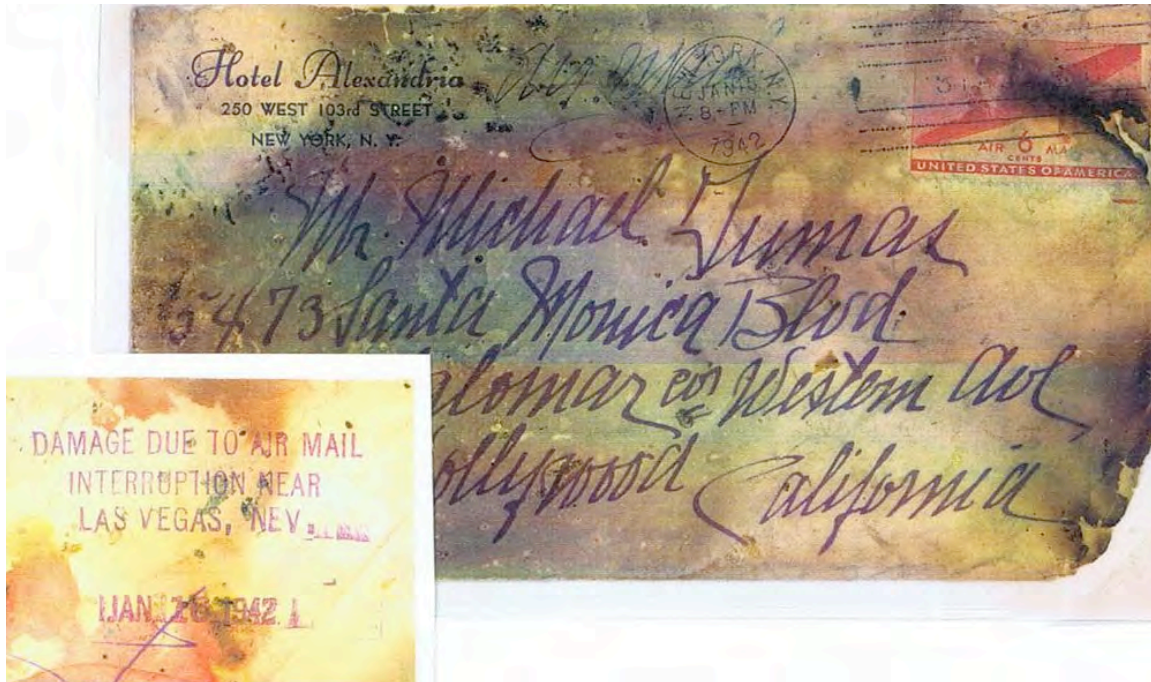 Hotel Alexandria
250 WEST 103rd STREET
NEW YORK, N. Y.
Air Mail
NEW YORK, N.Y.
JAN 15
8-PM
1942
AIR 6 MAIL
CENTS
UNITED STATES OF AMERICA
Mr. Michael Dumas
5473 Santa Monica Blvd.
alomar cor Western Ave
ollywood California
DAMAGE DUE TO AIR MAIL
INTERRUPTION NEAR
LAS VEGAS, NEV
JAN 16 1942